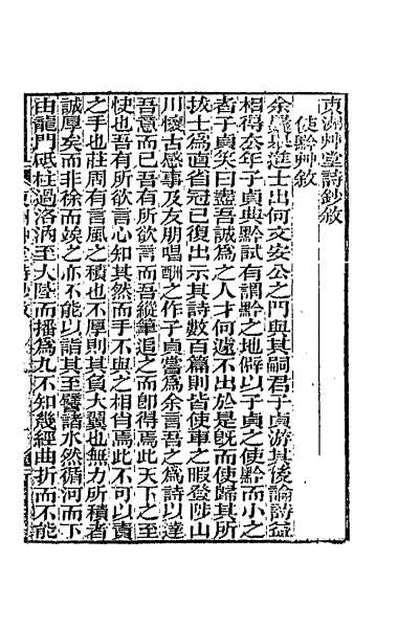 東洲艸堂詩鈔敘
使黔艸敘
余舉進士出何文安公之門與其嗣君子貞游其後論詩益
相得去年子貞典黔試有謂黔之地僻以子貞之使黔而小之
者子貞笑曰盡吾誠爲之人才何遽不出於是旣而使歸其所
拔士爲直省冠已復出示其詩數百篇則皆使車之暇登陟山
川懷古感事及友朋唱酬之作子貞嘗爲余言吾之爲詩以達
吾意而已吾有所欲言而吾縱筆追之而卽得焉此天下之至
快也吾有所欲言心知其然而手不與之相肖焉此不可以責
之手也莊周有言風之積也不厚則其負大翼也無力所積者
誠厚矣而非徐而竢之亦不能以詣其至譬諸水然循河而下
由龍門砥柱過洛汭至大陸而播爲九不知幾經曲折而不能